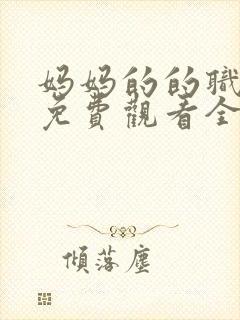 妈妈的的職
免費觀看全
傾落塵